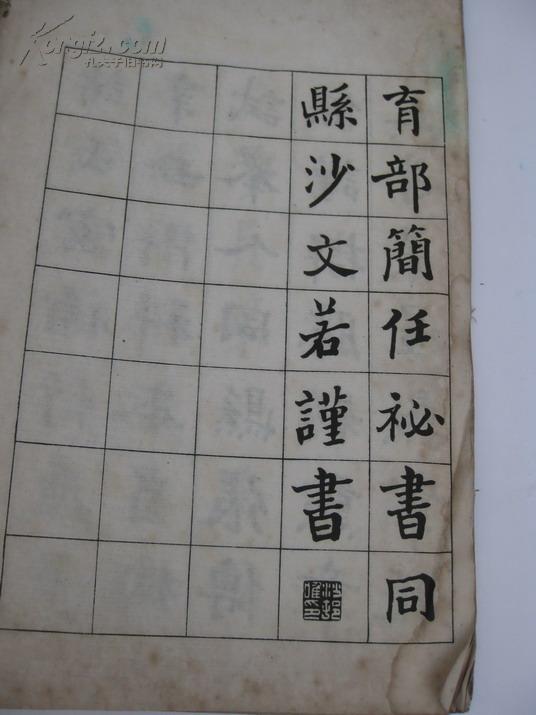 育部簡任祕書同
縣沙文若謹書
Kongfz.com
孔夫子旧书网